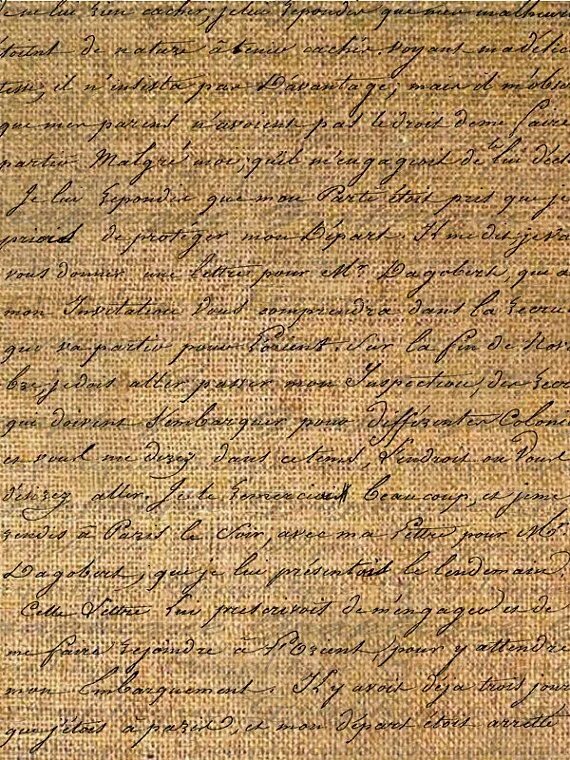 rien cacher, je lui repondis que mes malheurs
étoient de nature à tenir cachés. voyant ma délic
tesse, il n'insista pas Davantage; mais il m'obse
que mes parens n'avoient pas le droit de me faire
partir Malgré moi, qu'il m'engageoit de le lui décl
Je lui repondis que mon Parti étoit pris que je
priois de protéger mon Départ. Il me dit, je va
vous donner une lettre pour Mr. Dagobert, qui a
mon Invitation Vous comprendra dans la Recrue
qui va partir pour Lorient. Sur la fin de Nove
bre, je dois aller passer mon Inspection, des Recr
qui doivent s'embarquer pour différentes Coloni
et vous me direz dans ce tems, L'endroit ou Vous
désirez aller. Je le remerciois beaucoup, et je me
rendis à Paris le Soir, avec ma Lettre pour Mr.
Dagobert, que je lui présentois le lendemain.
Cette Lettre lui prescrivoit de m'engager et de
me faire rejoindre à L'Orient, pour y attendre
mon Embarquement. Il y avoit déja trois jour
que j'étois à paris, et mon départ étoit arretté